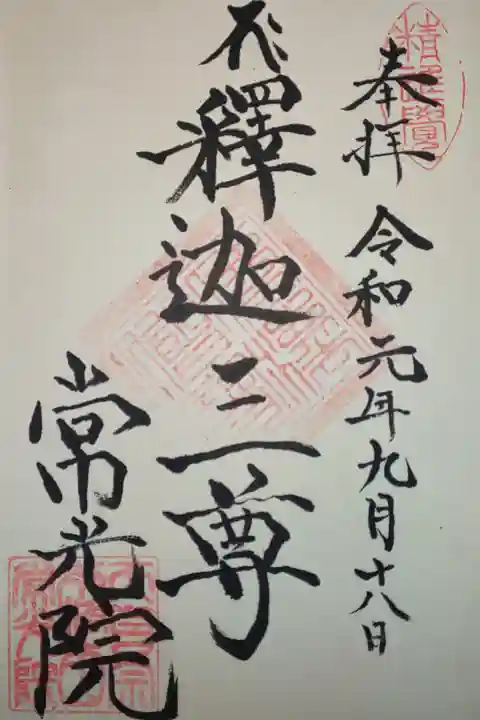 奉拝 令和元年九月十八日
釋迦三尊
常光院